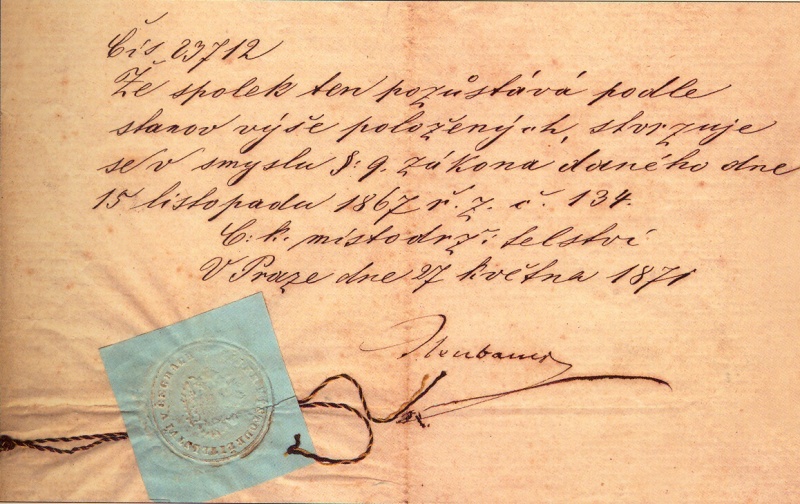 Čís. 23712
Že spolek ten pozůstává podle
stanov výše položených, stvrzuje
se v smyslu §: 9. zákona daného dne
15 listopadu 1867 ř. z. č. 134.
C: k. místodržitelství
V Praze dne 27 května 1871